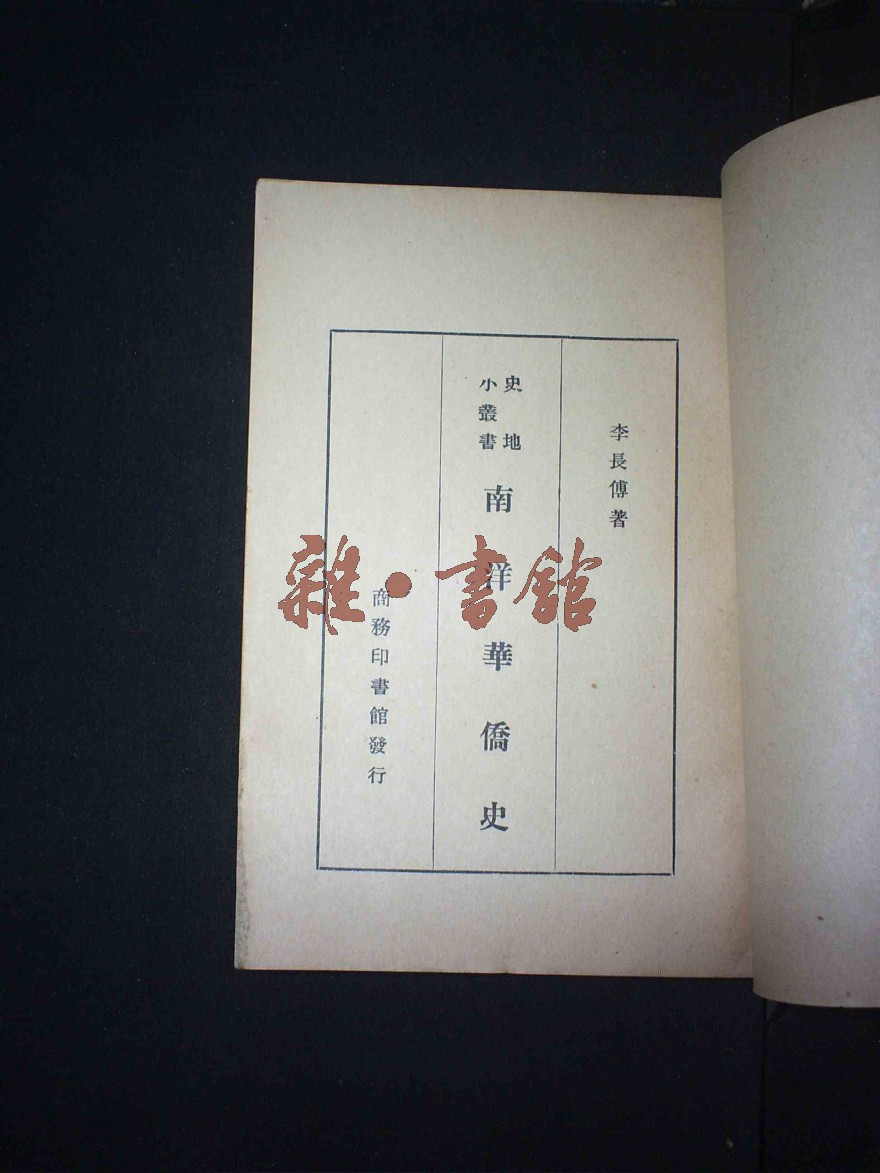 李長傅著
史地
小叢書
南洋華僑史
商務印書館發行
雜·書館